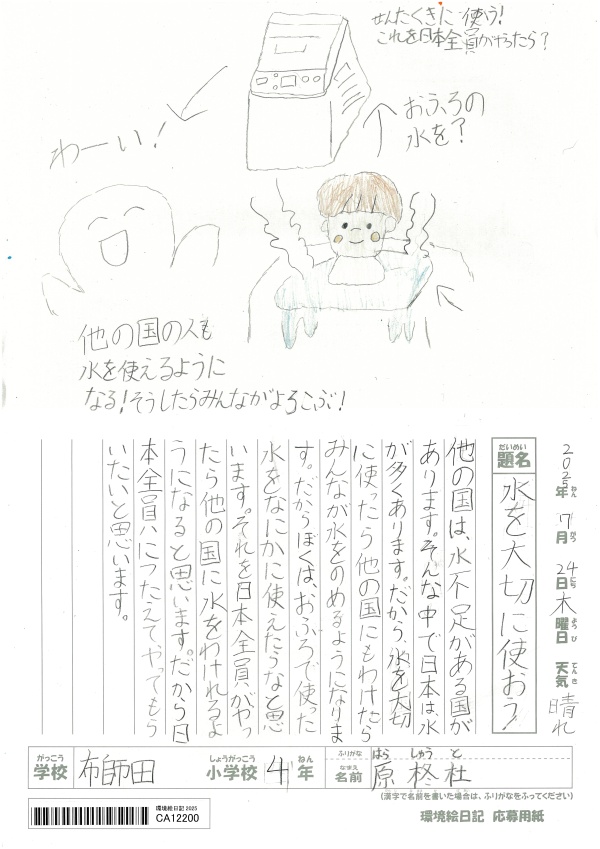 せんたくきに使う!
これを日本全員がやったら?
おふろの
水を?
わーい!
他の国の人も
水を使えるように
なる!そうしたらみんながよろこぶ!
2025年 7月 24日 木曜日 天気 晴れ
ねん がつ にち ようび てんき
だいめい
題名
水を大切に使おう!
他の国は、水不足がある国が
あります。そんな中で日本は、水
が多くあります。だから、水を大切
に使ったら他の国にもわけたら
みんなが水をのめるようになりま
す。だからぼくは、おふろで使った
水をなにかに使えたらなと思
います。それを日本全員がやっ
たら他の国に水をわけれるよ
うになると思います。だから日
本全員ハにつたえてやってもら
いたいと思います。
がっこう しょうがっこう ねん
学校 布師田 小学校 4年
ふりがな はら しゅう と
なまえ
名前 原 柊杜
(漢字で名前を書いた場合は、ふりがなをふってください)
環境絵日記 2025
CA12200
環境絵日記 応募用紙